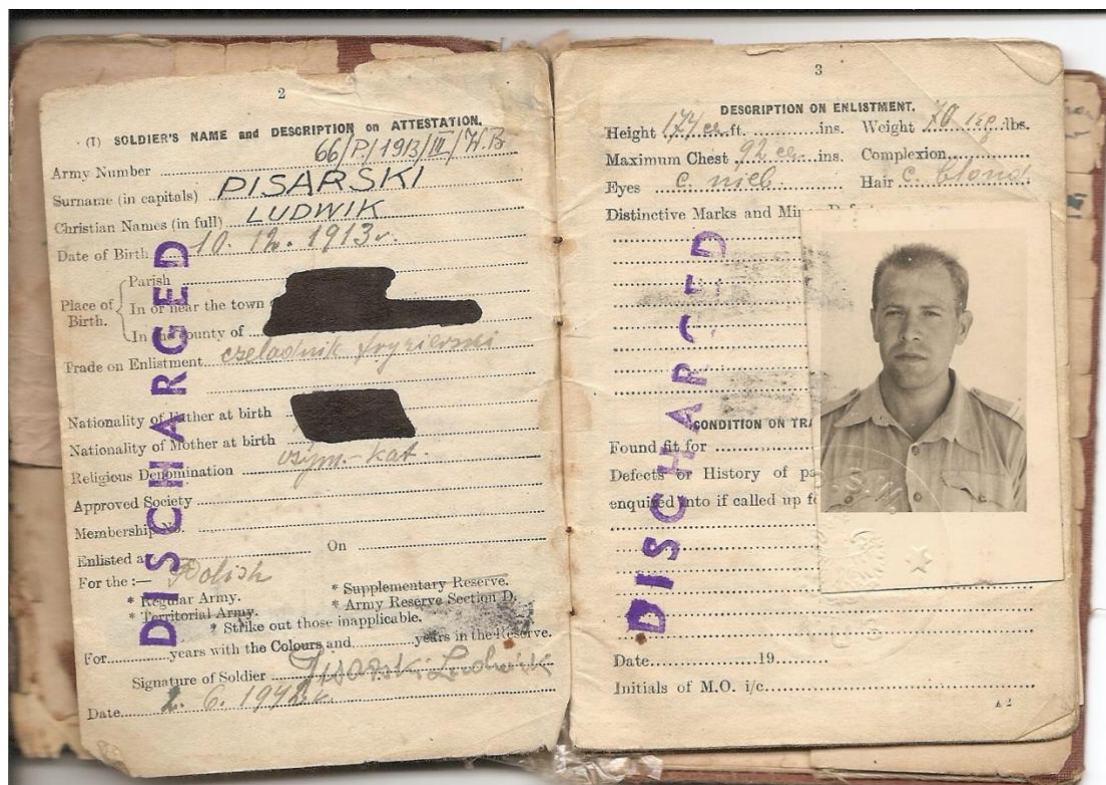 2
(I) SOLDIER'S NAME and DESCRIPTION on ATTESTATION.
Army Number 66/P/1913/III/W.B
Surname (in capitals) PISARSKI
Christian Names (in full) LUDWIK
Date of Birth 10. 12. 1913r.
Place of Birth.
Parish
In or near the town
In the county of
Trade on Enlistment czeladnik fryzierski
Nationality of Father at birth
Nationality of Mother at birth
Religious Denomination rzym.-kat.
Approved Society
Membership No.
Enlisted at On
For the :— Polish
* Regular Army. * Supplementary Reserve.
* Territorial Army. * Army Reserve Section D.
* Strike out those inapplicable.
For years with the Colours and years in the Reserve.
Signature of Soldier Pisarski Ludwik
Date 2. 6. 1942.r.
DISCHARGED
3
DESCRIPTION ON ENLISTMENT.
Height ft. ins. Weight 70 kg lbs.
Maximum Chest 92 ins. Complexion
Eyes c. nieb. Hair c. blond
Distinctive Marks and
CONDITION ON
Found fit for
Defects or History of
enquired into if called up
Date 19
Initials of M.O. i/c
A 2
DISCHARGED